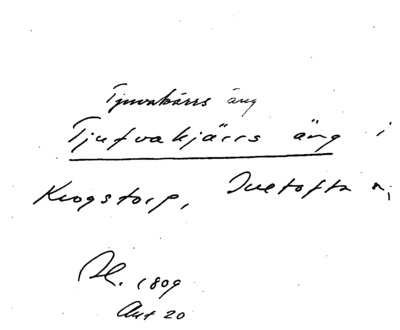 Tjuvakärrs äng
Tjufvakjärrs äng i
Krogstorp, Ivetofta s;
Akt 20